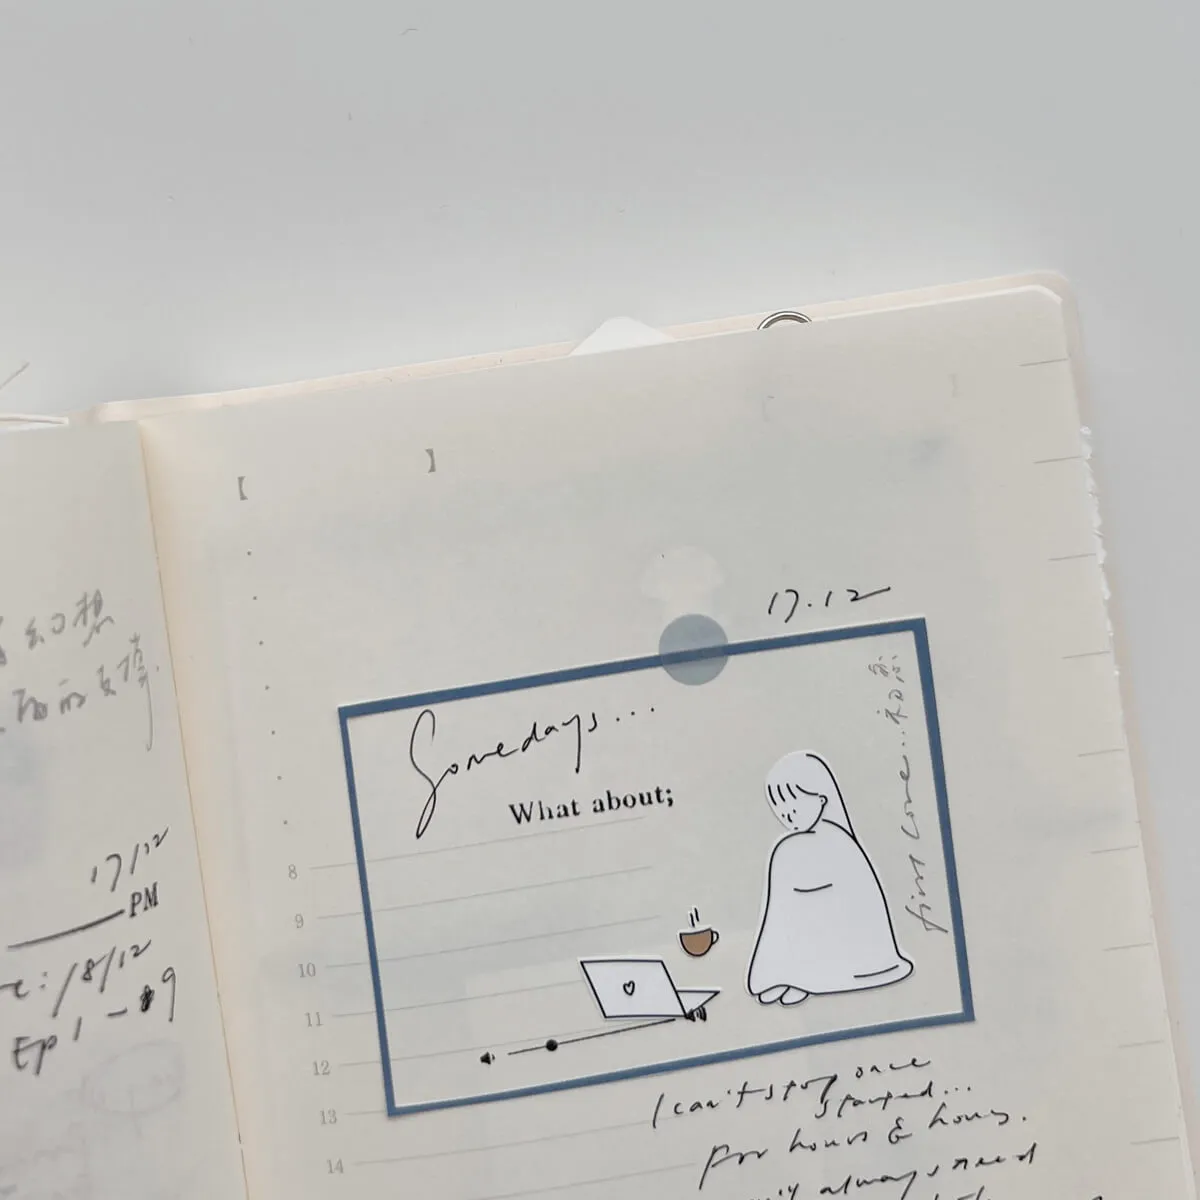 幻想
的友情
17/12
PM
18/12
Ep 1 - 9
【 】
17.12
Somedays...
What about;
first love...初恋
8
9
10
11
12
13
14
I can't stop once
started...
for hours & hours.
always need